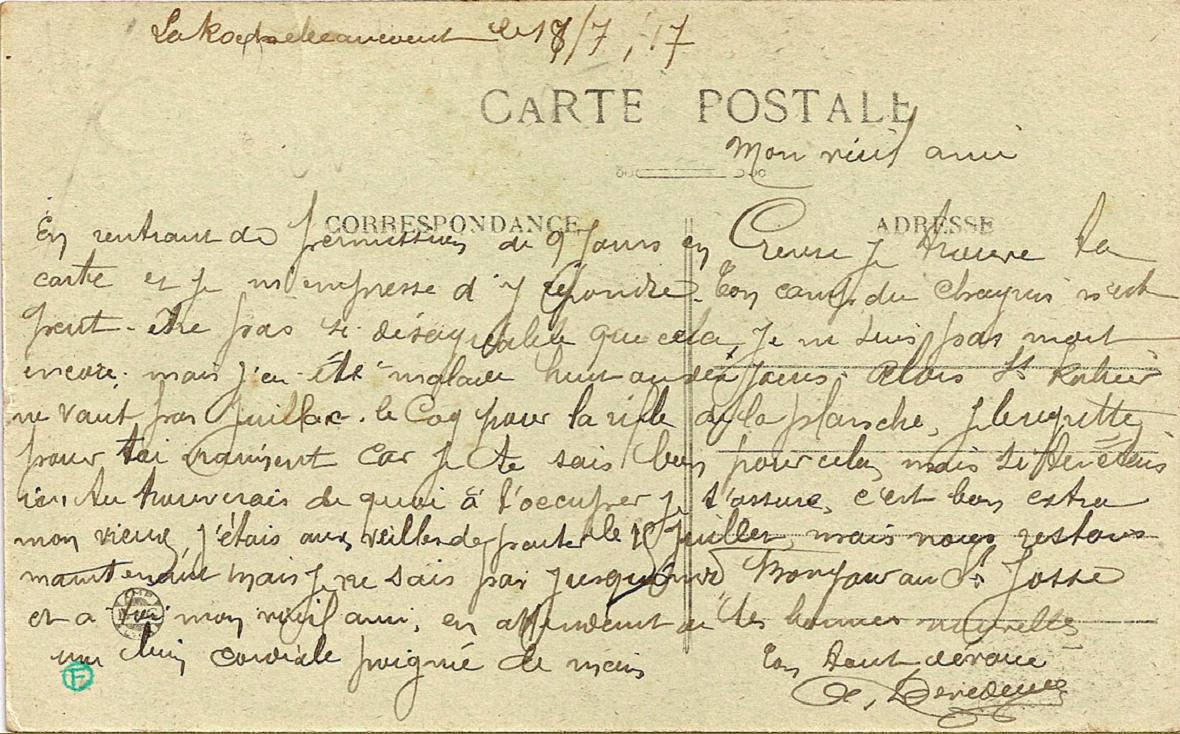 le 18/7, 17
CARTE POSTALE
Mon vieil ami
CORRESPONDANCE
ADRESSE
En rentrant de permission de 9 Jours en Creuse je trouve ta
carte et je m'empresse d'y répondre. Ton camp du n'est
peut-être pas si désagréable que cela, je ne suis pas mort
encore, mais j'en été malade huit ou dix jours. Alors St
ne vaut pas Juillac. le Coq pour la de la planche,
pour toi vraiment car je te sais bon pour cela, mais si tu étais
ici tu trouverais de quoi à t'occuper je t'assure, c'est bon extra
mon vieux, j'étais aux veilles de partir le Juillet, mais nous restons
maintenant mais je ne sais pas jusqu'à Bonjour au St Josse
et à toi mon vieil ami, en attendant de tes bonnes nouvelles
une bien cordiale poignée de main
Ton tout dévoué